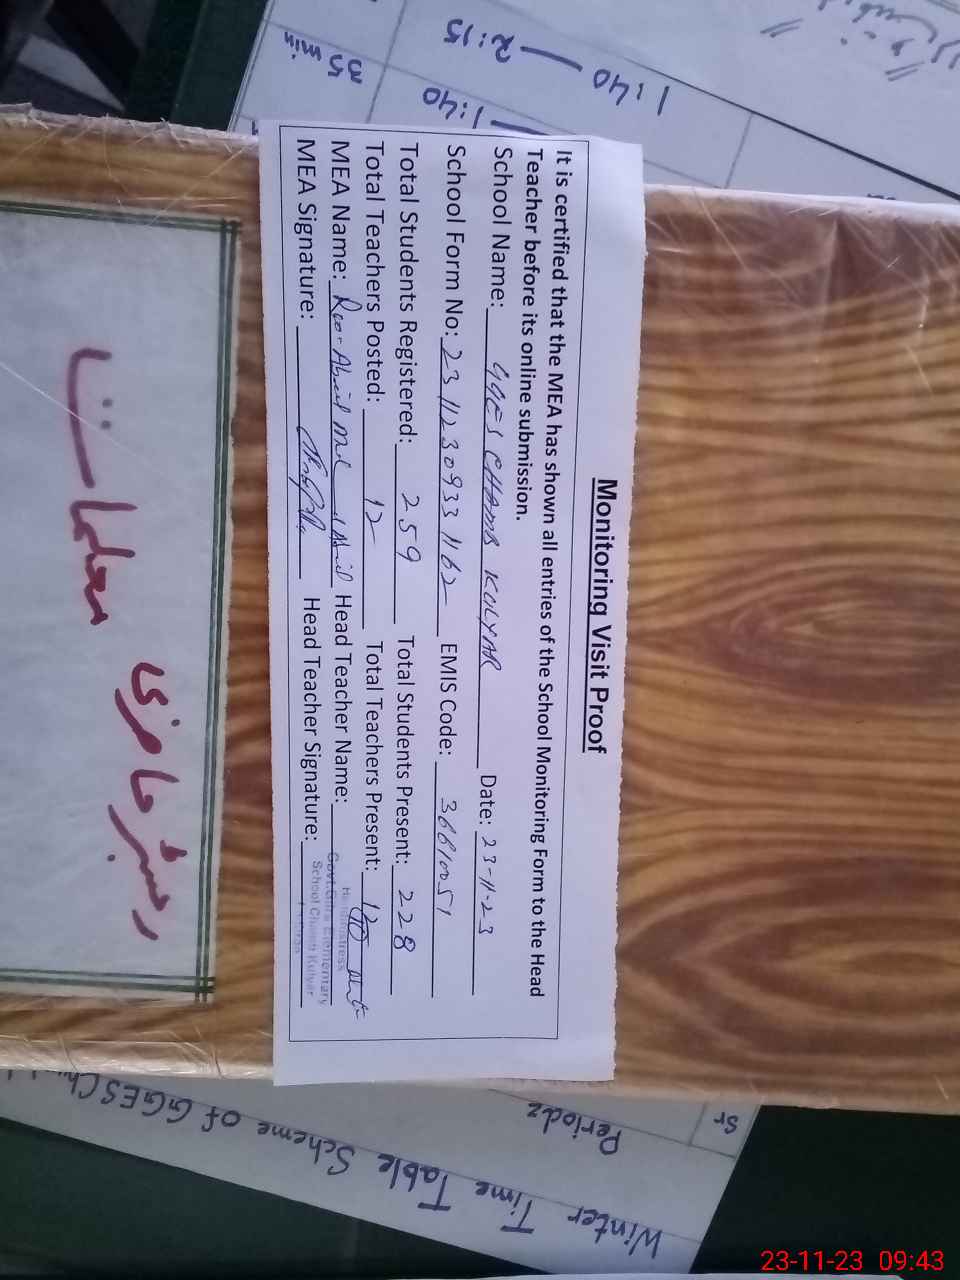 Monitoring Visit Proof
It is certified that the MEA has shown all entries of the School Monitoring Form to the Head
Teacher before its online submission.
School Name: GGES CHAMB KOLYAR Date: 23-11-23
School Form No: 23112309331162 EMIS Code:
Total Students Registered: 259 Total Students Present: 228
Total Teachers Posted: 12 Total Teachers Present:
MEA Name: Head Teacher Name:
MEA Signature: Head Teacher Signature:
Headmistress
Govt. Girls Elementary
School Chamb Kulyar
رجسٹر حاضری
معلمات
1:40 — 2:15
35 min
1:40
Winter Time Table Scheme of GGES
Sr
Periodz
23-11-23 09:43